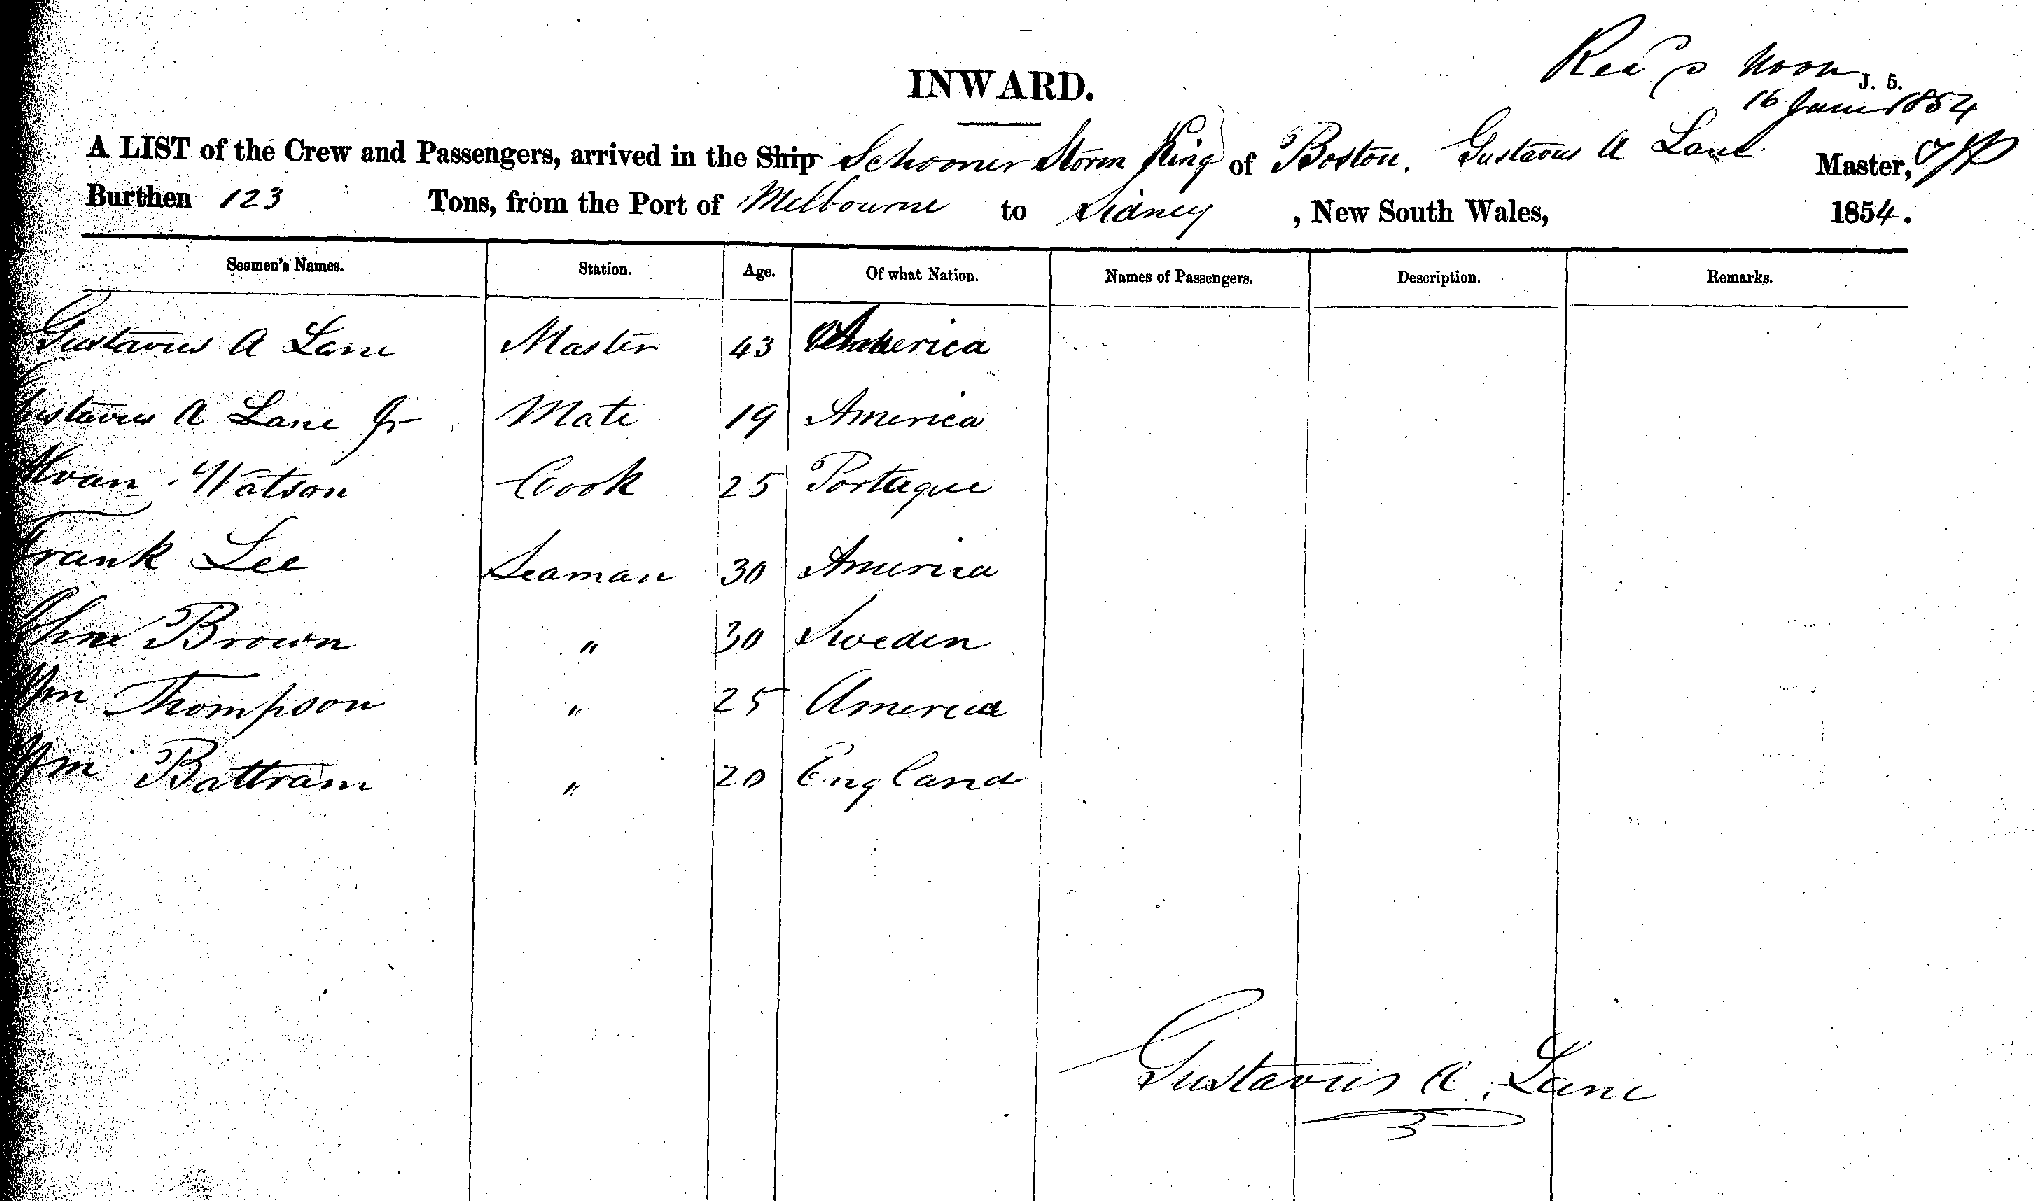 Noon
J. 5.
16 June 1854
INWARD.
A LIST of the Crew and Passengers, arrived in the Ship Schooner Storm King of Boston. Gustavus A Lane Master,
Burthen 123 Tons, from the Port of Melbourne to Sidney , New South Wales, 1854.
Seamen's Names. Station. Age. Of what Nation. Names of Passengers. Description. Remarks.
Gustavus A Lane Master 43 America
Gustavus A Lane Jr Mate 19 America
Watson Cook 25 Portugue
Frank Lee Seaman 30 America
John Brown " 30 Sweden
Wm Thompson " 25 America
Wm Battram " 20 England
Gustavus A. Lane